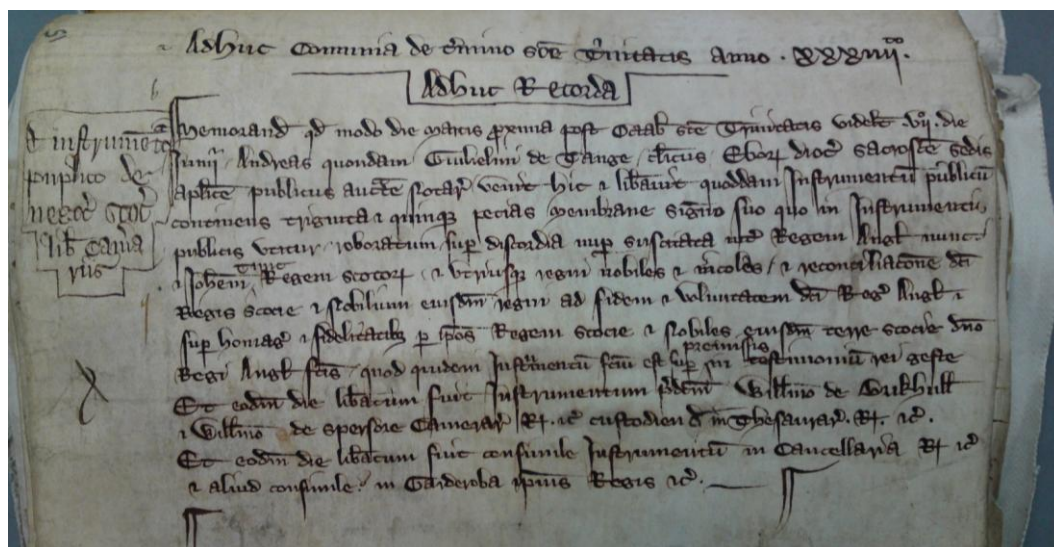 Adhuc Comunia de t'mino sc̄e T'nitatis Anno . xxxiiij.to
Adhuc Recorda
d' instrum̄to
puplico de
negoc' Scoc'
lib' Cam̄a
riis
Memorand' qd' modo die martis p̄xima post Octab' sc̄e Trinitatis videlt' .vij. die
Junij Andreas quondam Guilielmi de Tange, cl'icus Ebor' dioc' sacrosc̄e Sedis
ap̄lice publicus auct̄e Notar' venit hic & lib'avit quoddam Instrumentū publicū
continens triginta & quinq; pecias membrane signo suo quo in Instrumentis
publicis utitur roboratum sup' discordia nup' suscitata int' Regem Angl' nunc
& Joh'em tunc Regem Scotor' & utriusq; regni nobiles & incolas / & reconciliac̄one d'c̄i
Regis Scocie & Nobilium eiusd'm regni ad fidem & voluntatem d'c̄i Reg' Angl' &
sup' homag' & fidelitatib; p' ip̄os Regem Scocie & Nobiles eiusd'm terre Scocie d'no
Regi Angl' fc̄is, quod quidem Instrumentū fc̄m est sup' premissis in testimoniū rei geste
Et eod'm die lib'atum fuit Instrumentum p̄d'c̄m Will'mo de Brikhull
& Will'mo de Spersore Camerar' R'. &c' custodiend' in Thesaurar'. R'. &c'.
Et eod'm die lib'atum fuit consimile Instrumentū in Cancellaria R' &c'
& aliud consimile in Garderoba ip̄ius Regis &c'.